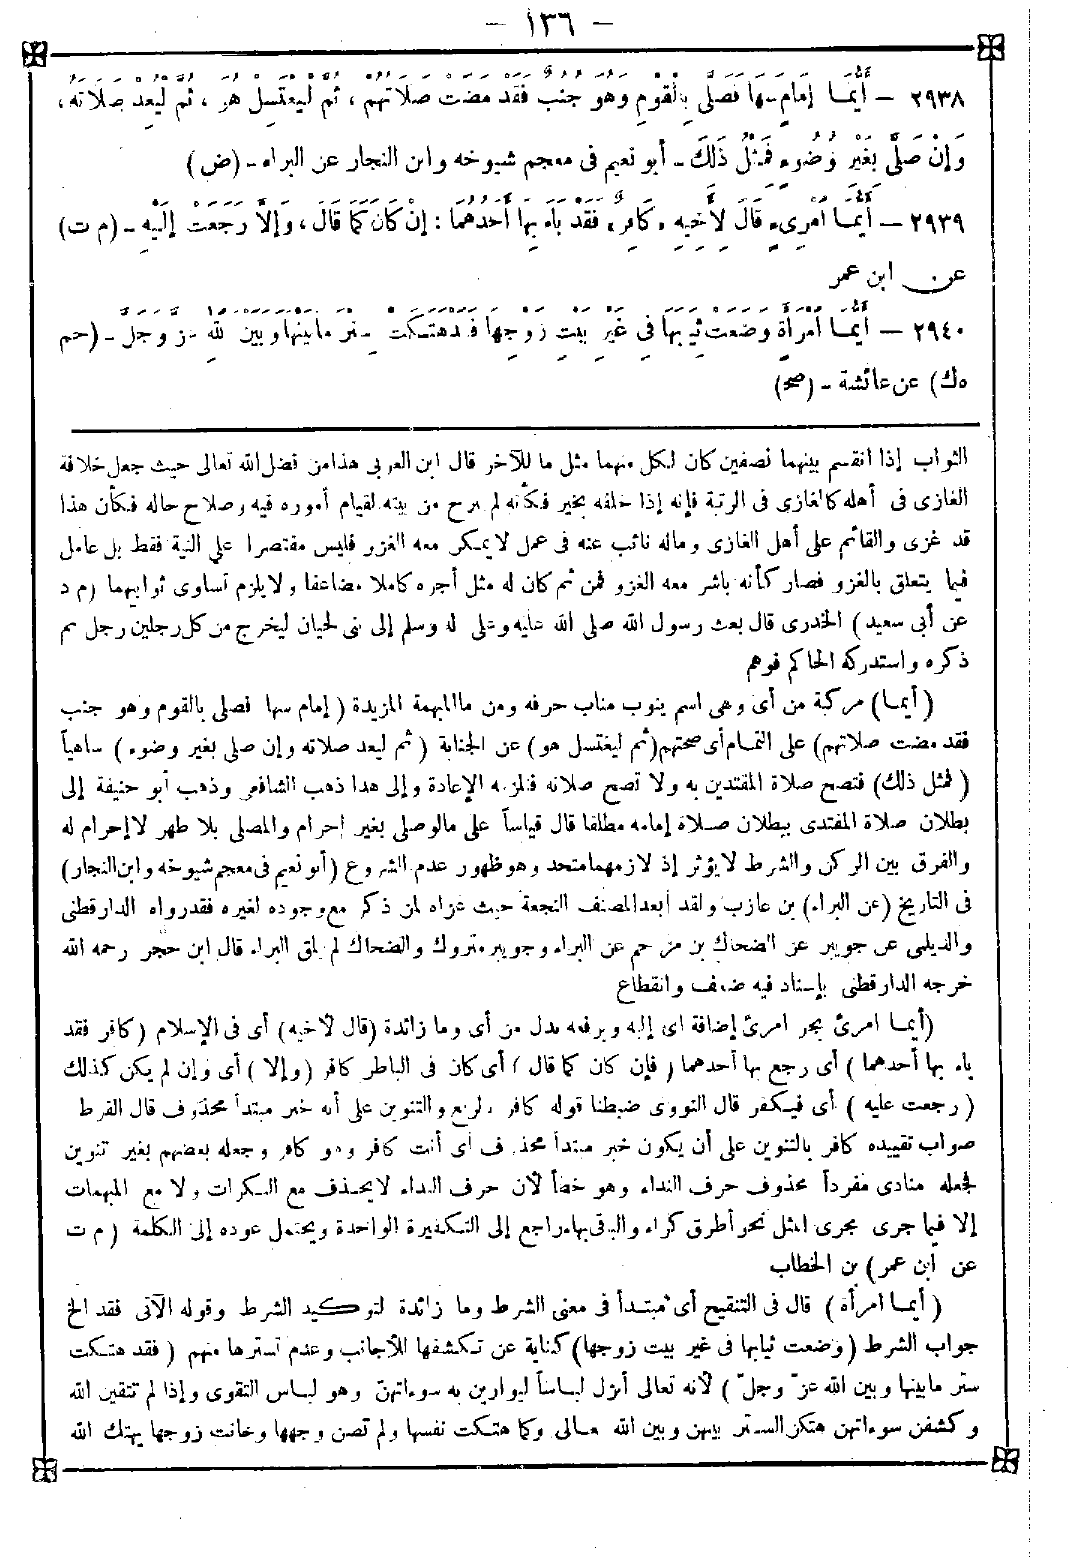 — ١٣٦ —
٢٩٣٨ — أَيُّمَا إِمَامٍ سَهَا فَصَلَّى بِالْقَوْمِ وَهُوَ جُنُبٌ فَقَدْ مَضَتْ صَلَاتُهُمْ، ثُمَّ لْيَغْتَسِلْ هُوَ، ثُمَّ لْيُعِدْ صَلَاتَهُ،
وَإِنْ صَلَّى بِغَيْرِ وُضُوءٍ فَمِثْلُ ذَلِكَ - أبو نعيم فى معجم شيوخه وابن النجار عن البراء - (ض)
٢٩٣٩ — أَيُّمَا امْرِىءٍ قَالَ لِأَخِيهِ «كَافِرٌ» فَقَدْ بَاءَ بِهَا أَحَدُهُمَا: إِنْ كَانَ كَمَا قَالَ، وَإِلَّا رَجَعَتْ إِلَيْهِ - (م ت)
عن ابن عمر
٢٩٤٠ — أَيُّمَا امْرَأَةٍ وَضَعَتْ ثِيَابَهَا فِي غَيْرِ بَيْتِ زَوْجِهَا فَقَدْ هَتَكَتْ سِتْرَ مَا بَيْنَهَا وَبَيْنَ اللهِ عَزَّ وَجَلَّ - (حم
ه ك) عن عائشة - (صح)
الثواب إذا انقسم بينهما نصفين كان لكل منهما مثل ما للآخر قال ابن العربى هذا من فضل الله تعالى حيث جعل خلافة
الغازى فى أهله كالغازى فى الرتبة فإنه إذا خلفه بخير فكأنه لم يبرح من بيته لقيام أموره فيه وصلاح حاله فكأن هذا
قد غزى والقائم على أهل الغازى وماله نائب عنه فى عمل لا يمكن معه الغزو فليس مقتصرا على النية فقط بل عامل
فيما يتعلق بالغزو فصار كأنه باشر معه الغزو فمن ثم كان له مثل أجره كاملا مضاعفا ولا يلزم تساوى ثوابيهما (م د
عن أبى سعيد) الخدرى قال بعث رسول الله صلى الله عليه وعلى آله وسلم إلى بنى لحيان ليخرج من كل رجلين رجل ثم
ذكره واستدركه الحاكم فوهم
(أيما) مركبة من أى وهى اسم ينوب مناب حرفه ومن ما المبهمة المزيدة (إمام سها فصلى بالقوم وهو جنب
فقد مضت صلاتهم) على التمام أى صحتهم (ثم ليغتسل هو) عن الجنابة (ثم ليعد صلاته وإن صلى بغير وضوء) ساهياً
(فمثل ذلك) فتصح صلاة المقتدين به ولا تصح صلاته فلزمه الإعادة وإلى هذا ذهب الشافعى وذهب أبو حنيفة إلى
بطلان صلاة المقتدى ببطلان صلاة إمامه مطلقا قال قياساً على ما لو صلى بغير إحرام والمصلى بلا طهر لا إحرام له
والفرق بين الركن والشرط لا يؤثر إذ لازمهما متحد وهو ظهور عدم الشروع (أبو نعيم فى معجم شيوخه وابن النجار)
فى التاريخ (عن البراء) بن عازب ولقد أبعد المصنف النجعة حيث عزاه لمن ذكر مع وجوده لغيره فقد رواه الدارقطنى
والديلمى عن جويبر عن الضحاك بن مزاحم عن البراء وجويبر متروك والضحاك لم يلق البراء قال ابن حجر رحمه الله
خرجه الدارقطنى بإسناد فيه ضعف وانقطاع
(أيما امرئ بجر امرئ إضافة اى إليه وبرفعه بدل من أى وما زائدة (قال لأخيه) أى فى الإسلام (كافر فقد
باء بها أحدهما) أى رجع بها أحدهما (فإن كان كما قال) أى كان فى الباطن كافر (وإلا) أى وإن لم يكن كذلك
(رجعت عليه) أى فيكفر قال النووى ضبطنا قوله كافر بالرفع والتنوين على أنه خبر مبتدأ محذوف قال القرط
صواب تقييده كافر بالتنوين على أن يكون خبر مبتدأ محذوف أى أنت كافر وهو كافر وجعله بعضهم بغير تنوين
فجعله منادى مفرداً محذوف حرف النداء وهو خطأ لأن حرف النداء لا يحذف مع النكرات ولا مع المبهمات
إلا فيما جرى مجرى المثل نحو أطرق كراء والباقى بها راجع إلى التكفيرة الواحدة ويحتمل عوده إلى الكلمة (م ت
عن ابن عمر) بن الخطاب
(أيما امرأة) قال فى التنقيح أى مبتدأ فى معنى الشرط وما زائدة لتوكيد الشرط وقوله الآتى فقد الخ
جواب الشرط (وضعت ثيابها فى غير بيت زوجها) كناية عن تكشفها للأجانب وعدم تسترها منهم (فقد هتكت
ستر ما بينها وبين الله عزّ وجلّ) لأنه تعالى أنزل لباساً ليوارين به سوءاتهن وهو لباس التقوى وإذا لم تتقين الله
وكشفن سوءاتهن هتكن الستر بينهن وبين الله تعالى وكما هتكت نفسها ولم تصن وجهها وخانت زوجها يهتك الله